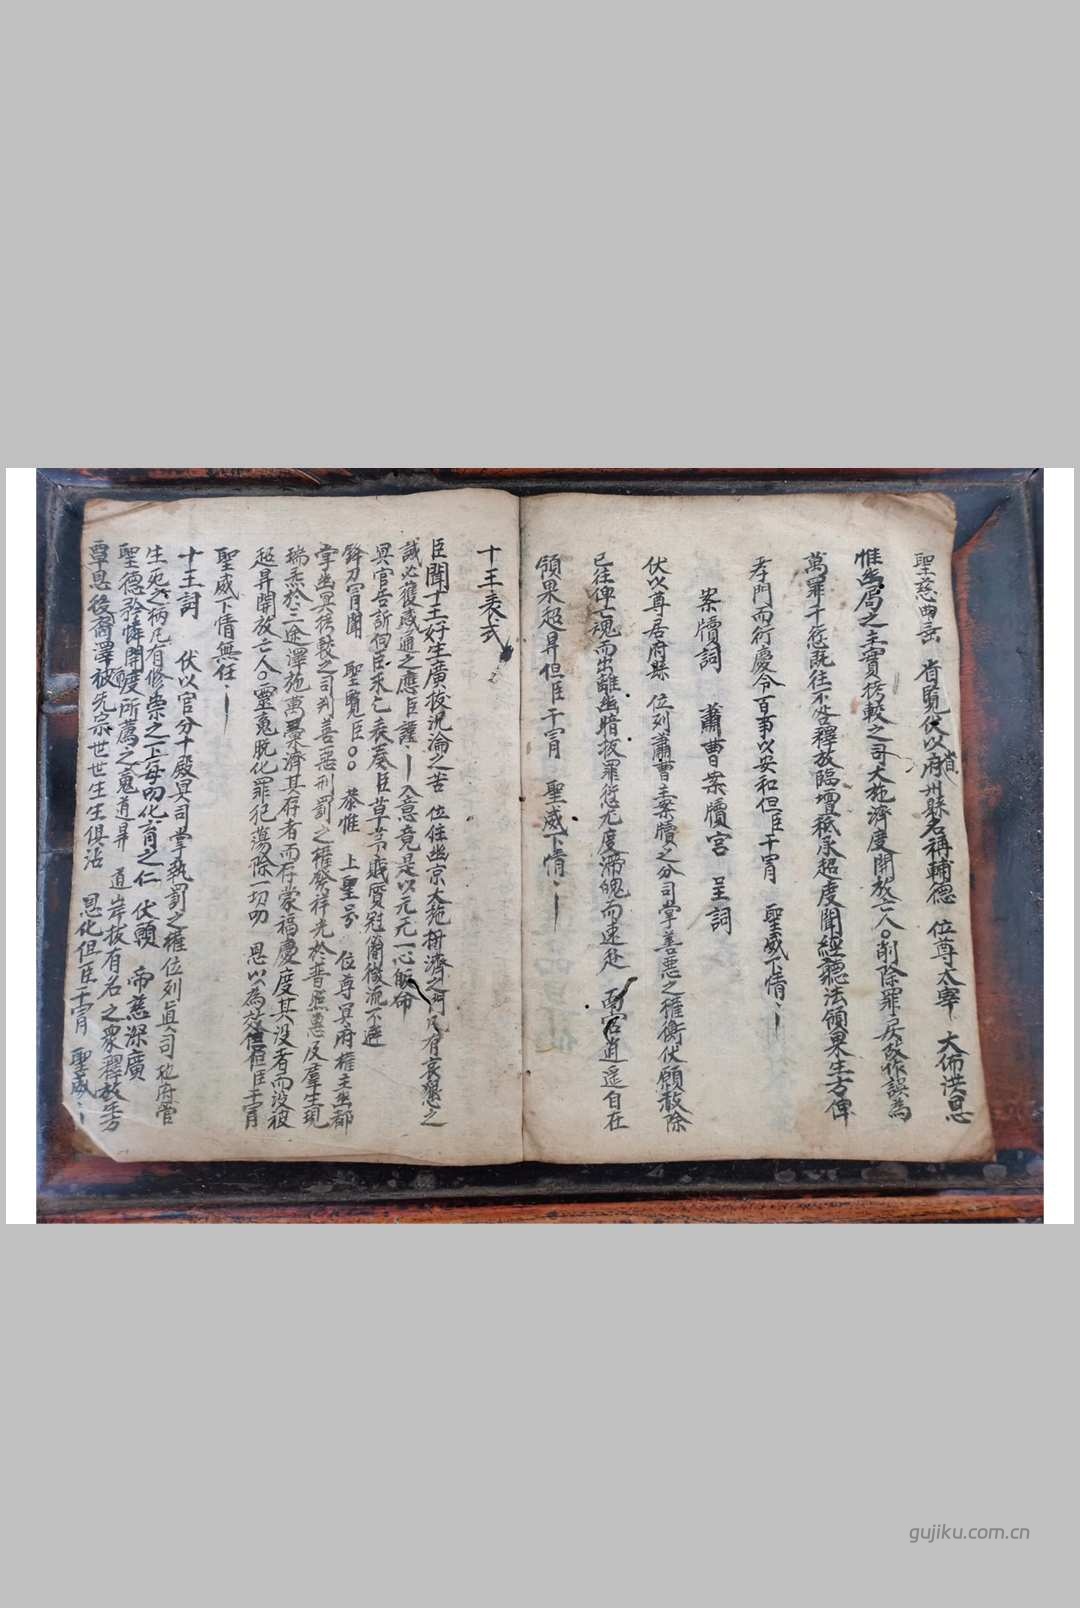 聖慈曲垂 省覽伏以府州縣名稱輔德 位尊太宰 大佈洪恩
惟幽局之主實考較之司大施濟度開放亡人〇削除罪戾改作誤為
萬罪千愆既往不咎釋放臨壇祗承超度聞經聽法領果生方俾
孝門而衍慶令百事以安和但臣干冒 聖威下情
案牘詞 蕭曹案牘宮 呈詞
伏以尊居府縣 位列蕭曹主案牘之分司掌善惡之權衡伏願赦除
已往俾亡魂而出離幽暗拔罪愆尤度滯魄而速赴 南宮逍遥自在
領果超昇但臣干冒 聖威下情
十王表式
臣聞十王好生廣拔沉淪之苦 位住幽京大施拼濟之 凡有哀懇之
誠必獲感通之應臣謹 入意竟是以元元一心皈命
冥官告訴 臣 表奏臣草芥賤質冠簡微流不避
鋒刀冒聞 聖覽臣〇〇 恭惟 上聖号 位尊冥府權主幽都
掌幽冥考較之司判善惡刑罰之權發祥光於普照惠及羣生現
瑞炁於三途澤施萬彙濟其存者而存蒙福慶度其没者而没被
超昇開放亡人〇靈魂脱化罪犯蕩除一切叨 恩以為效 但臣干冒
聖威下情無任
十王詞 伏以官分十殿冥司掌執罰之權位列真司地府管
生死之柄凡有修崇之上每叨化育之仁 伏願 帝慈深廣
聖德矜憐開度所薦之魂道昇 道岸拔有名之眾釋放生方
覃恩後裔澤被先宗世世生生俱沾 恩化但臣干冒 聖威
gujiku.com.cn